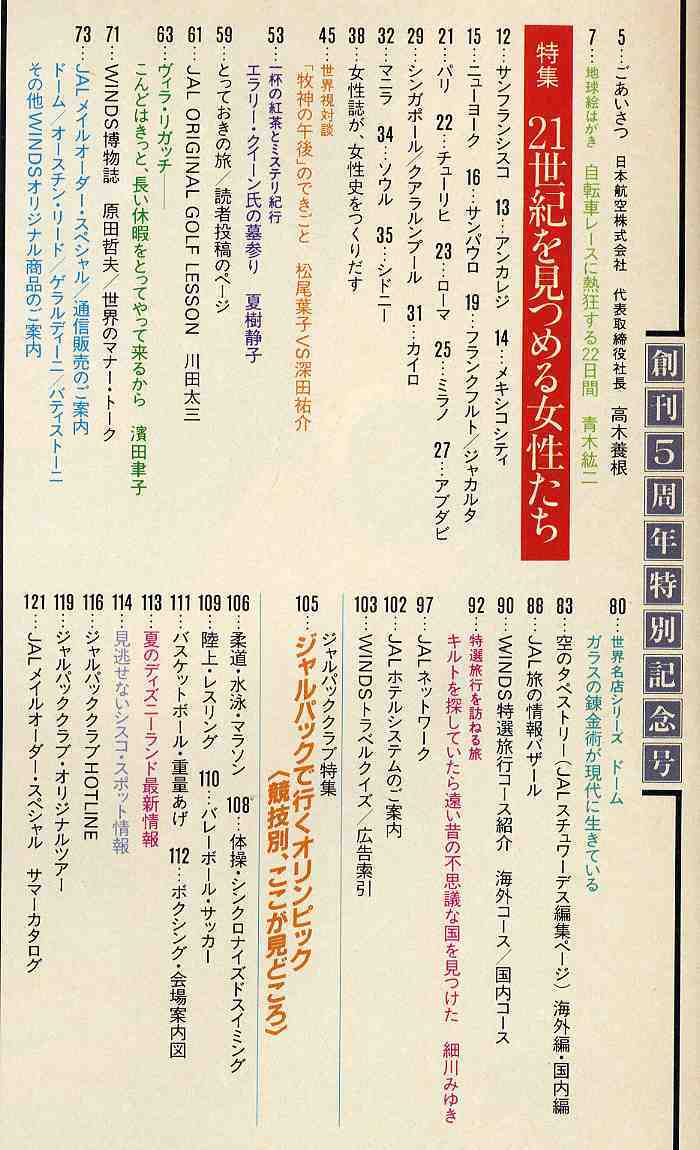 創刊5周年特別記念号
5…ごあいさつ 日本航空株式会社 代表取締役社長 高木養根
7…地球絵はがき 自転車レースに熱狂する22日間 青木紘二
特集 21世紀を見つめる女性たち
12…サンフランシスコ 13…アンカレジ 14…メキシコシティ
15…ニューヨーク 16…サンパウロ 19…フランクフルト/ジャカルタ
21…パリ 22…チューリヒ 23…ローマ 25…ミラノ 27…アブダビ
29…シンガポール/クアラルンプール 31…カイロ
32…マニラ 34…ソウル 35…シドニー
38…女性誌が、女性史をつくりだす
45…世界視対談
「牧神の午後」のできごと 松尾葉子VS深田祐介
53…一杯の紅茶とミステリ紀行
エラリー・クイーン氏の墓参り 夏樹静子
59…とっておきの旅/読者投稿のページ
61…JAL ORIGINAL GOLF LESSON 川田太三
63…ヴィラ・リガッチ――
こんどはきっと、長い休暇をとってやって来るから 濱田聿子
71…WINDS博物誌 原田哲夫/世界のマナー・トーク
73…JALメイルオーダー・スペシャル/通信販売のご案内
ドーム/オースチン・リード/ゲラルディーニ/バティストーニ
その他WINDSオリジナル商品のご案内
80…世界名店シリーズ ドーム
ガラスの錬金術が現代に生きている
83…空のタペストリー(JALスチュワーデス編集ページ) 海外編・国内編
88…JAL旅の情報バザール
90…WINDS特選旅行コース紹介 海外コース/国内コース
92…特選旅行を訪ねる旅
キルトを探していたら遠い昔の不思議な国を見つけた 細川みゆき
97…JALネットワーク
102…JALホテルシステムのご案内
103…WINDSトラベルクイズ/広告索引
ジャルパッククラブ特集
105…ジャルパックで行くオリンピック
〈競技別、ここが見どころ〉
106…柔道・水泳・マラソン 108…体操・シンクロナイズドスイミング
109…陸上・レスリング 110…バレーボール・サッカー
111…バスケットボール・重量あげ 112…ボクシング・会場案内図
113…夏のディズニーランド最新情報
114…見逃せないシスコ・スポット情報
116…ジャルパッククラブHOTLINE
119…ジャルパッククラブ・オリジナルツアー
121…JALメイルオーダー・スペシャル サマーカタログ